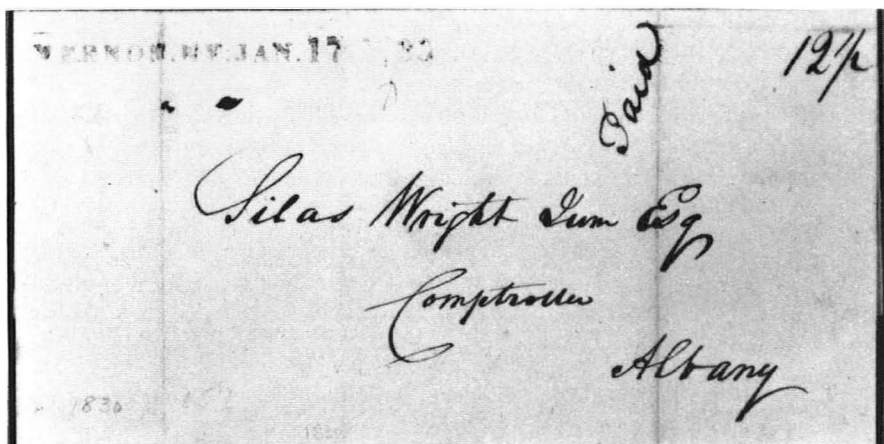 VERNON.NY.JAN.17
Paid
12½
Silas Wright Jun Esq
Comptroller
Albany
1830